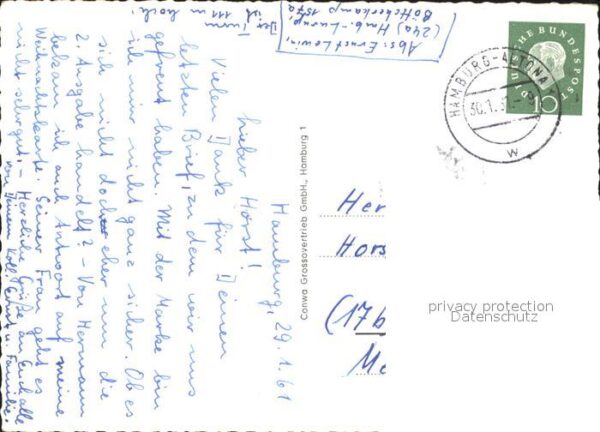 Abs: Ernst Lewin,
(24a) Hmb.-Lurup,
Böttcherkamp 157a
Der Turm
ist 111 m hoch.
Hamburg, 29.1.61
Lieber Horst!
Vielen Dank für Deinen
letzten Brief, zu dem wir uns
gefreut haben. Mit der Marke bin
ich mir nicht ganz sicher. Ob es
sich nicht doch eher um die
2. Ausgabe handelt? - Von Hermann
bekam ich auch Antwort auf meine
Weihnachtskarte. Seiner Frau geht es
nicht sehr gut. - Herzliche Grüße an Euch alle
von Deinem Koll. Ernst u. Familie.
Conwa Grossovertrieb GmbH., Hamburg 1
DEUTSCHE BUNDESPOST
10
HAMBURG-ALTONA
30.1.
W
Her
Hors
(17b
privacy protection
Datenschutz